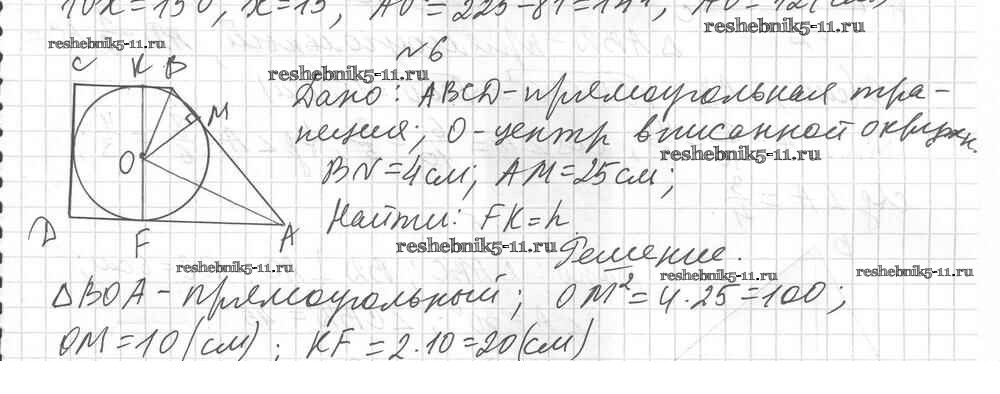 10x=150, x=15, AO²=225-81=144, AO=12(см)
reshebnik5-11.ru
reshebnik5-11.ru
№6
reshebnik5-11.ru
C K B
M
O
D
F
A
Дано: ABCD-прямоугольная тра-
пеция; O-центр вписанной окружн.
reshebnik5-11.ru
BN=4см; AM=25см;
Найти: FK=h
reshebnik5-11.ru
Решение.
reshebnik5-11.ru
reshebnik5-11.ru
reshebnik5-11.ru
△BOA-прямоугольный; OM²=4·25=100;
OM=10(см); KF=2·10=20(см)